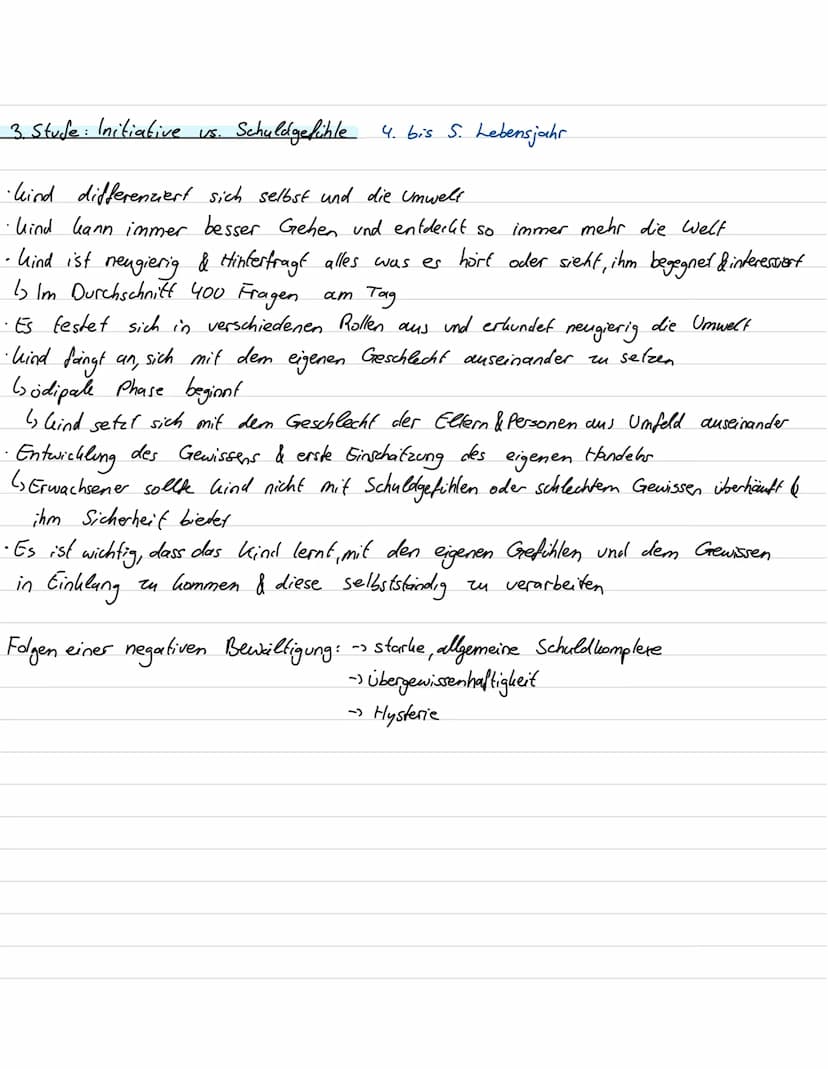 3. Stufe: Initiative vs. Schuldgefühle 4. bis 5. Lebensjahr
· Kind differenziert sich selbst und die Umwelt
· Kind kann immer besser Gehen und entdeckt so immer mehr die Welt
· Kind ist neugierig & Hinterfragt alles was es hört oder sieht, ihm begegnet & interessiert
↳ Im Durchschnitt 400 Fragen am Tag
· Es testet sich in verschiedenen Rollen aus und erkundet neugierig die Umwelt
· Kind fängt an, sich mit dem eigenen Geschlecht auseinander zu setzen
↳ ödipale Phase beginnt
↳ Kind setzt sich mit dem Geschlecht der Eltern & Personen aus Umfeld auseinander
· Entwicklung des Gewissens & erste Einschätzung des eigenen Handelns
↳ Erwachsener sollte Kind nicht mit Schuldgefühlen oder schlechtem Gewissen überhäuft &
ihm Sicherheit bietet
· Es ist wichtig, dass das Kind lernt, mit den eigenen Gefühlen und dem Gewissen
in Einklang zu kommen & diese selbstständig zu verarbeiten
Folgen einer negativen Bewältigung: -> starke, allgemeine Schuldkomplexe
-> Übergewissenhaftigkeit
-> Hysterie